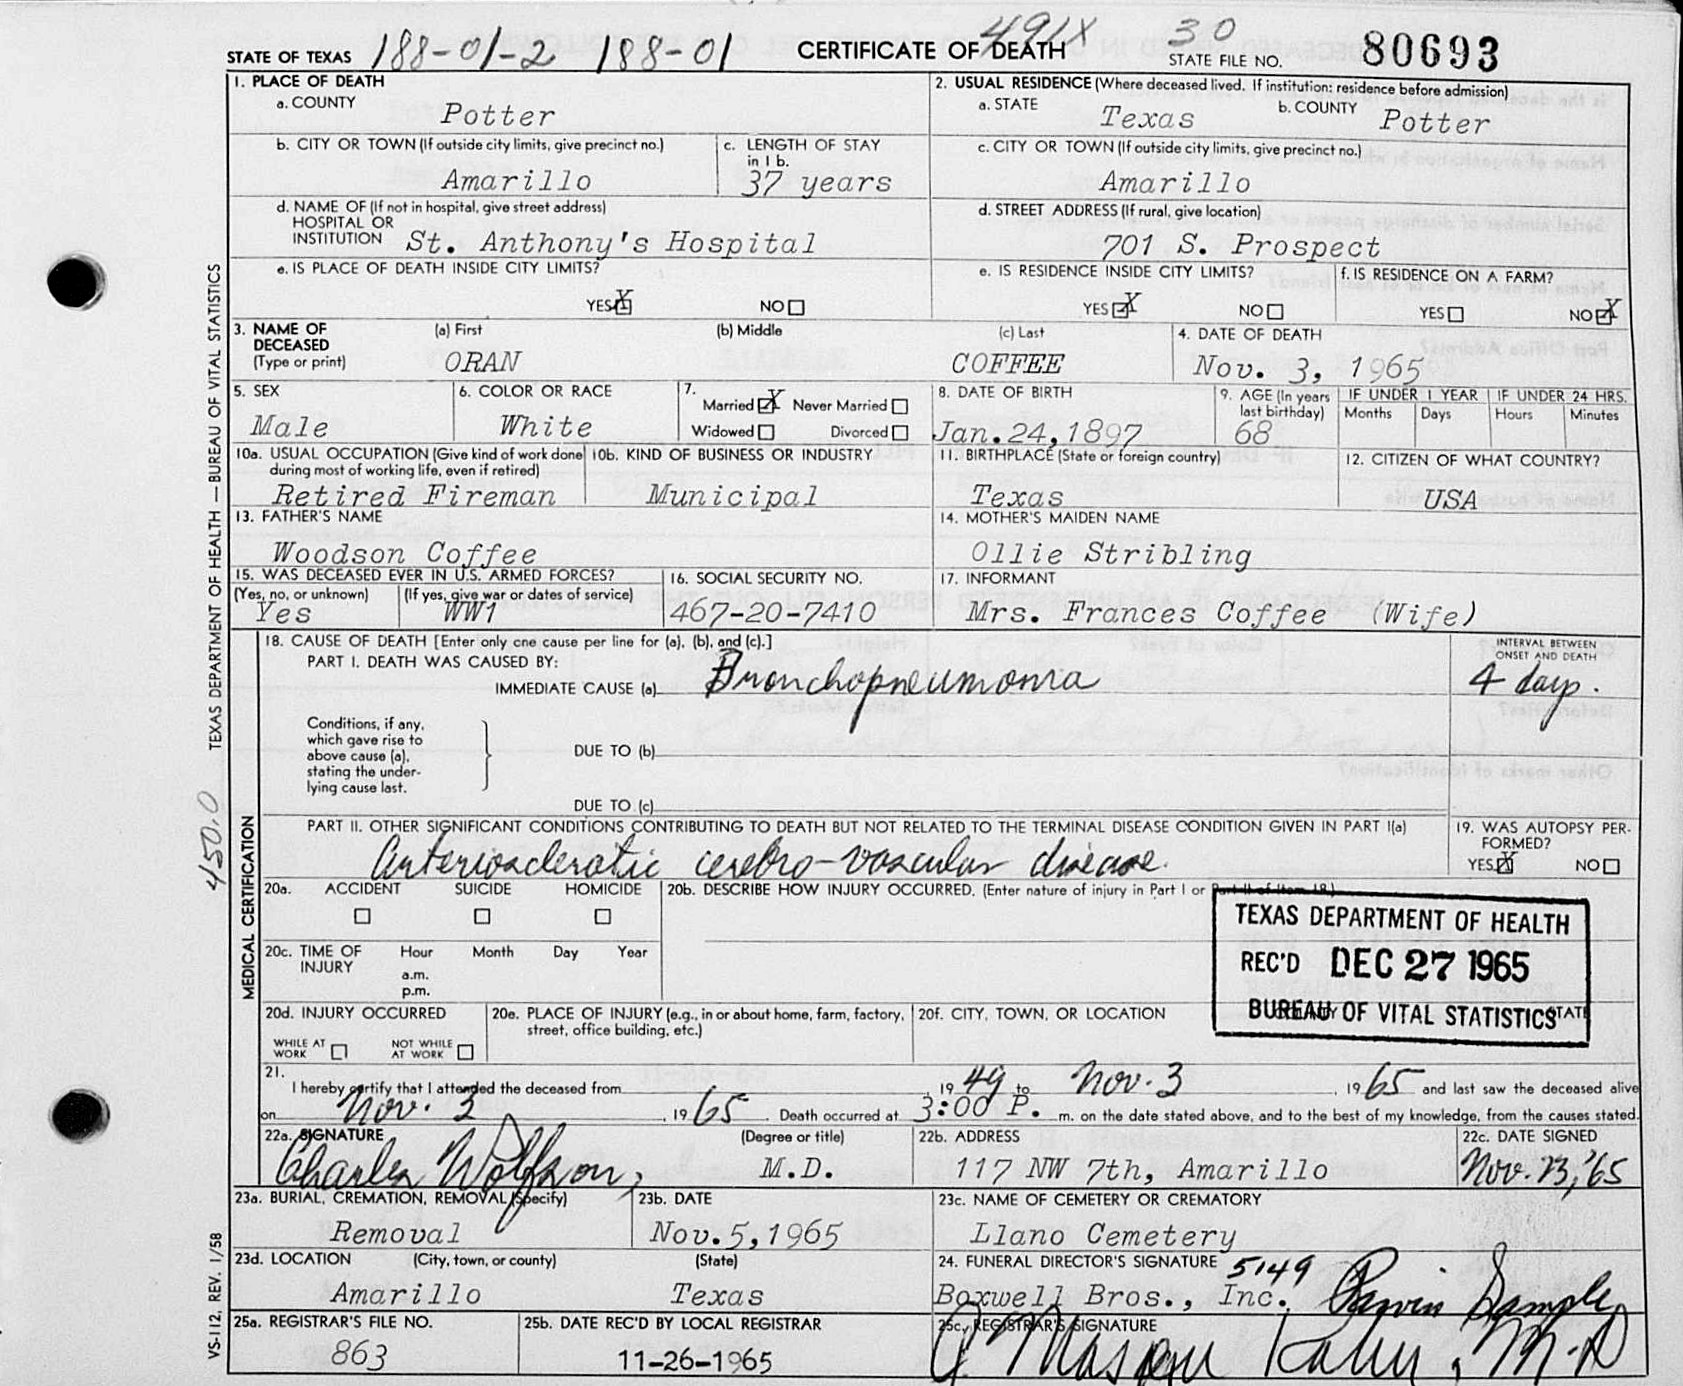 STATE OF TEXAS 188-01-2 188-01 CERTIFICATE OF DEATH 491X 30 STATE FILE NO. 80693
1. PLACE OF DEATH
a. COUNTY
Potter
2. USUAL RESIDENCE (Where deceased lived. If institution: residence before admission)
a. STATE Texas b. COUNTY Potter
b. CITY OR TOWN (If outside city limits, give precinct no.)
Amarillo
c. LENGTH OF STAY
in 1 b.
37 years
c. CITY OR TOWN (If outside city limits, give precinct no.)
Amarillo
d. NAME OF (If not in hospital, give street address)
HOSPITAL OR
INSTITUTION St. Anthony's Hospital
d. STREET ADDRESS (If rural, give location)
701 S. Prospect
e. IS PLACE OF DEATH INSIDE CITY LIMITS?
YES X NO
e. IS RESIDENCE INSIDE CITY LIMITS?
YES X NO
f. IS RESIDENCE ON A FARM?
YES NO X
3. NAME OF
DECEASED
(Type or print)
(a) First (b) Middle (c) Last
ORAN COFFEE
4. DATE OF DEATH
Nov. 3, 1965
5. SEX
Male
6. COLOR OR RACE
White
7.
Married X Never Married
Widowed Divorced
8. DATE OF BIRTH
Jan.24,1897
9. AGE (In years
last birthday)
68
IF UNDER 1 YEAR IF UNDER 24 HRS.
Months Days Hours Minutes
10a. USUAL OCCUPATION (Give kind of work done
during most of working life, even if retired)
Retired Fireman
10b. KIND OF BUSINESS OR INDUSTRY
Municipal
11. BIRTHPLACE (State or foreign country)
Texas
12. CITIZEN OF WHAT COUNTRY?
USA
13. FATHER'S NAME
Woodson Coffee
14. MOTHER'S MAIDEN NAME
Ollie Stribling
15. WAS DECEASED EVER IN U.S. ARMED FORCES?
(Yes, no, or unknown) (If yes, give war or dates of service)
Yes WW1
16. SOCIAL SECURITY NO.
467-20-7410
17. INFORMANT
Mrs. Frances Coffee (Wife)
18. CAUSE OF DEATH [Enter only one cause per line for (a), (b), and (c).]
PART I. DEATH WAS CAUSED BY:
IMMEDIATE CAUSE (a) Bronchopneumonia
INTERVAL BETWEEN
ONSET AND DEATH
4 days.
Conditions, if any,
which gave rise to
above cause (a),
stating the under-
lying cause last.
DUE TO (b)
DUE TO (c)
PART II. OTHER SIGNIFICANT CONDITIONS CONTRIBUTING TO DEATH BUT NOT RELATED TO THE TERMINAL DISEASE CONDITION GIVEN IN PART I(a)
arteriosclerotic cerebro-vascular disease.
19. WAS AUTOPSY PER-
FORMED?
YES X NO
20a. ACCIDENT SUICIDE HOMICIDE
20b. DESCRIBE HOW INJURY OCCURRED. (Enter nature of injury in Part I or Part II of item 18.)
20c. TIME OF
INJURY
Hour Month Day Year
a.m.
p.m.
TEXAS DEPARTMENT OF HEALTH
REC'D DEC 27 1965
BUREAU OF VITAL STATISTICS
20d. INJURY OCCURRED
WHILE AT
WORK
NOT WHILE
AT WORK
20e. PLACE OF INJURY (e.g., in or about home, farm, factory,
street, office building, etc.)
20f. CITY, TOWN, OR LOCATION STATE
21.
I hereby certify that I attended the deceased from 1949 to Nov. 3, 1965 and last saw the deceased alive
on Nov. 3, 1965. Death occurred at 3:00 P. m. on the date stated above, and to the best of my knowledge, from the causes stated.
22a. SIGNATURE (Degree or title)
Charles Wolfson, M.D.
22b. ADDRESS
117 NW 7th, Amarillo
22c. DATE SIGNED
Nov. 23, '65
23a. BURIAL, CREMATION, REMOVAL (Specify)
Removal
23b. DATE
Nov.5,1965
23c. NAME OF CEMETERY OR CREMATORY
Llano Cemetery
23d. LOCATION (City, town, or county) (State)
Amarillo Texas
24. FUNERAL DIRECTOR'S SIGNATURE 5149
Boxwell Bros., Inc.
25a. REGISTRAR'S FILE NO.
863
25b. DATE REC'D BY LOCAL REGISTRAR
11-26-1965
25c. REGISTRAR'S SIGNATURE
M.D
TEXAS DEPARTMENT OF HEALTH — BUREAU OF VITAL STATISTICS
450.0
MEDICAL CERTIFICATION
VS-112, REV. 1/58